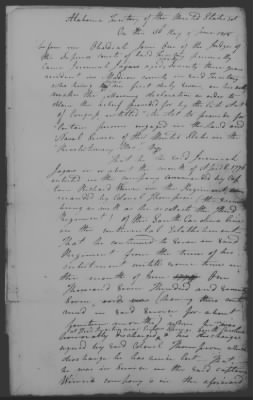 Alabama Territory of the United States Sct
On the 8th day of June 1818
before me Obadiah Jones One of the Judges of
the Superior courts of said Territory personally
Came Jeremiah Jaggers aged Seventy three years
resident in Madison County in said Territory
who being by me first duly sworn in his oath
makes the following declaration in order to
Obtain the relief provided for by the late Act
of Congress entitled An Act to provide for
Certain persons engaged in the land and
Naval Service of the United States in the
Revolutionary War
That he the said Jeremiah
Jaggers in about the month of April 1776
enlisted in the company commanded by Cap
tain Richard Winn in the Regiment
manded by Colonel Thompson
being as well as he recollects the third
Regiment of the South Carolina line
on the continental Establishment
That he continued to serve in said
Regiment from the time of his
enlistment until some time in
the month of June One
Thousand Seven Hundred and Seventy
Seven having thus conti
nued in said service for about
fourteen months when he was
honorably discharged his discharge
signed by said Colonel Thompson which
discharge he has since lost That
he was in service in the said captain
Winns company in the aforesaid